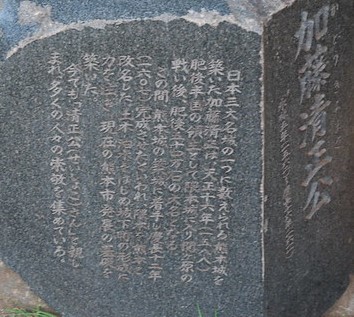 加藤清正公
日本三大名城の一つに数えられる熊本城を
築いた加藤清正は、天正十六年(一五八八)
肥後半国の領主として隈本城に入り関ヶ原の
戦い後、肥後五十二万石の大名となる。
この間、熊本城の築城に着手し慶長十二年
(一六〇七)完成させたといわれ、隈本を熊本と
改名した。土木・治水をはじめ城下町の形成に
力を注ぎ、現在の熊本市発展の基礎を
築いた。
今でも「清正公(せいしょこ)さん」として親し
まれ、多くの人々の崇敬を集めている。